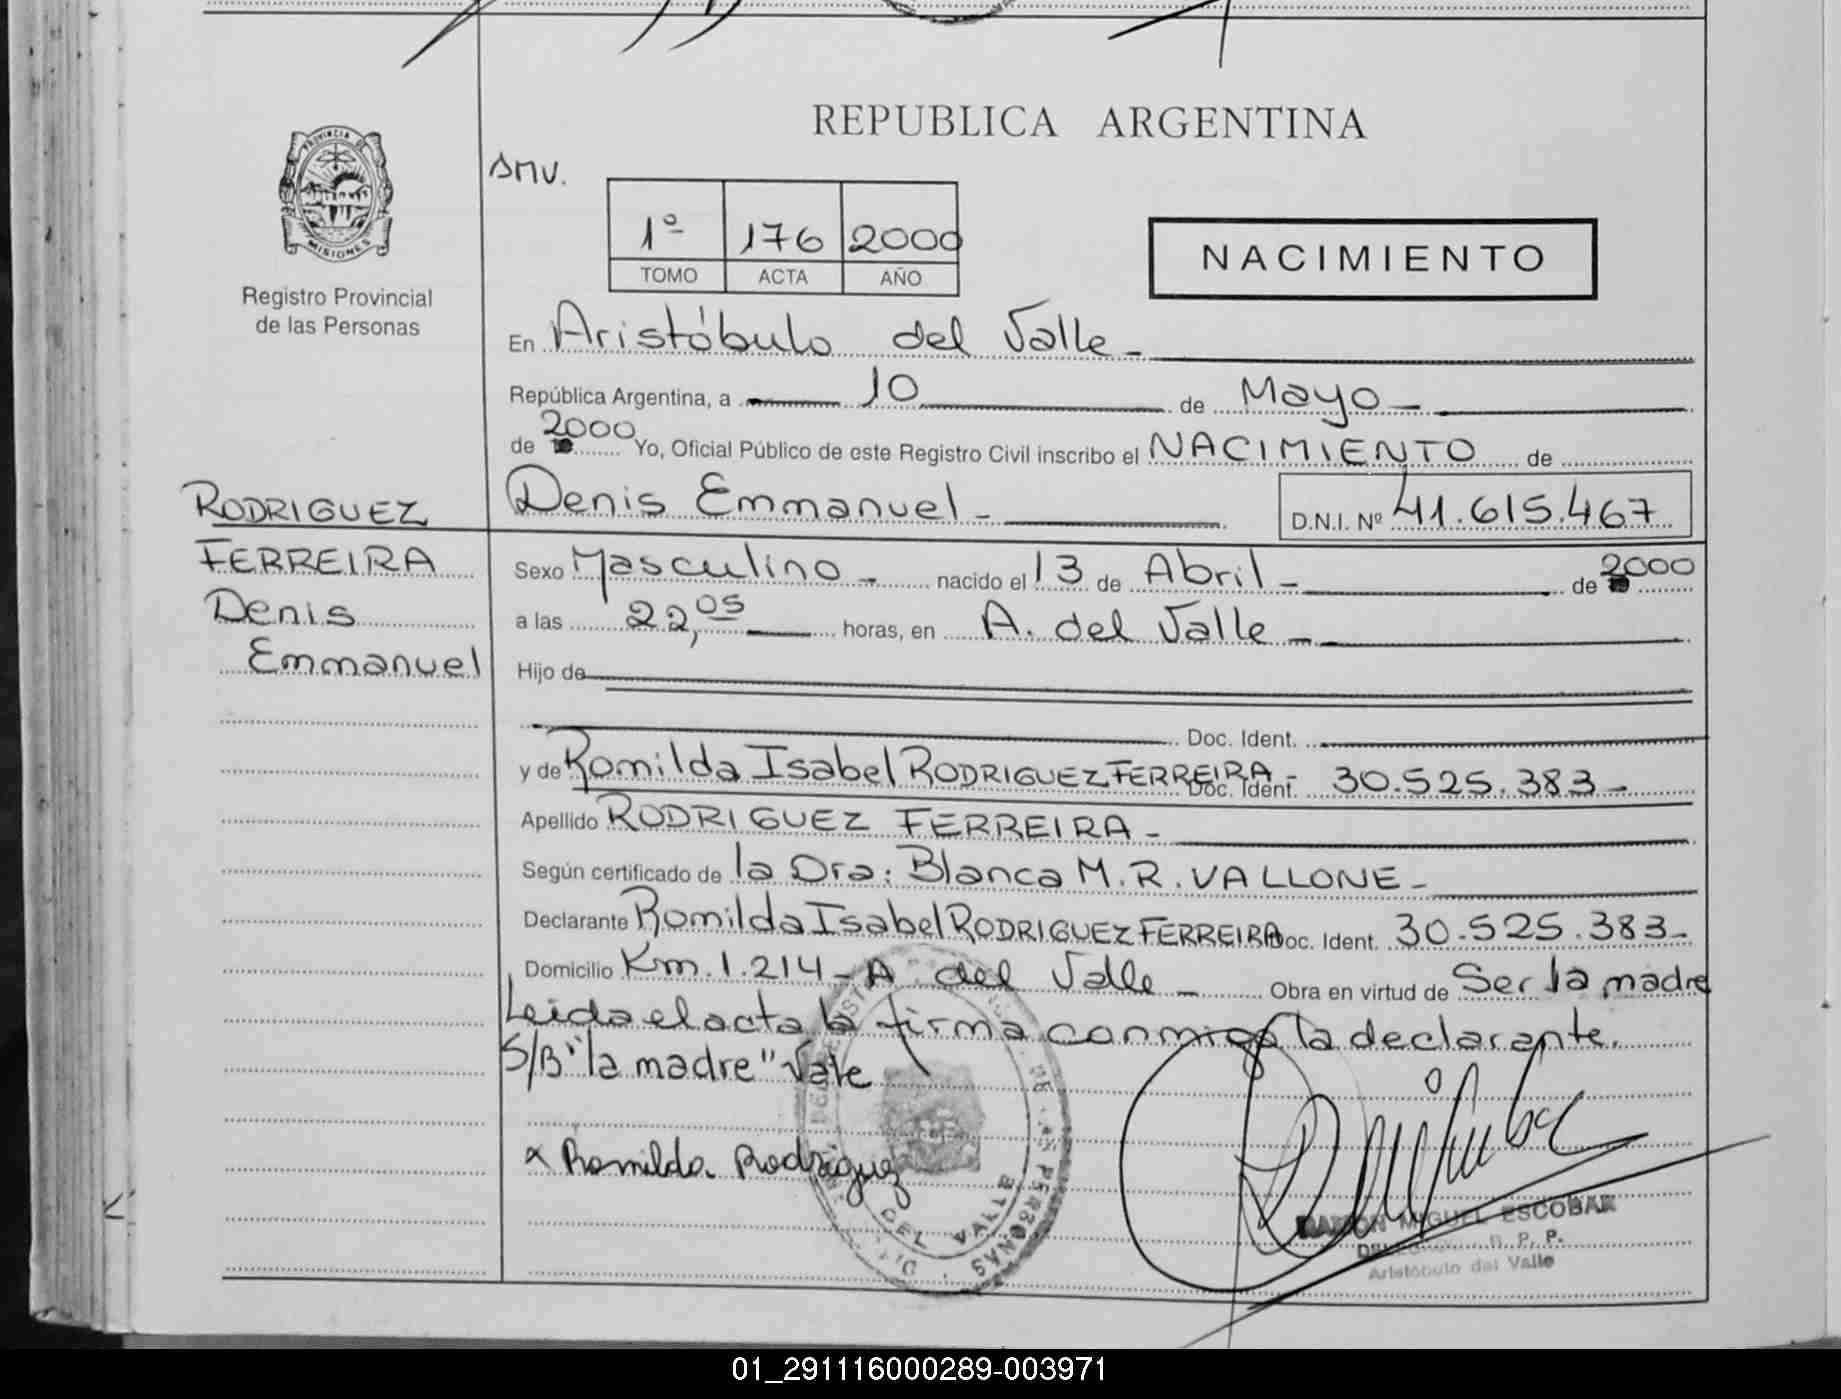 REPUBLICA ARGENTINA
PROVINCIA DE
MISIONES
Registro Provincial
de las Personas
SMV.
1º 176 2000
TOMO ACTA AÑO
NACIMIENTO
En Aristóbulo del Valle -
República Argentina, a 10 de Mayo -
de 2000 Yo, Oficial Público de este Registro Civil inscribo el NACIMIENTO de
Denis Emmanuel - D.N.I. Nº 41.615.467
RODRIGUEZ
FERREIRA
Denis
Emmanuel
Sexo Masculino - nacido el 13 de Abril - de 2000
a las 22,05 horas, en A. del Valle -
Hijo de
Doc. Ident.
y de Romilda Isabel RODRIGUEZ FERREIRA - Doc. Ident. 30.525.383 -
Apellido RODRIGUEZ FERREIRA -
Según certificado de la Dra: Blanca M.R. VALLONE -
Declarante Romilda Isabel RODRIGUEZ FERREIRA Doc. Ident. 30.525.383 -
Domicilio Km. 1.214 - A. del Valle - Obra en virtud de Ser la madre
Leida el acta la firma conmigo la declarante.
S/B "la madre" Vale
x Romilda Rodriguez
DE LAS PERSONAS
DEL VALLE
RAMON MIGUEL ESCOBAR
R. P. P.
Aristóbulo del Valle
01_291116000289-003971